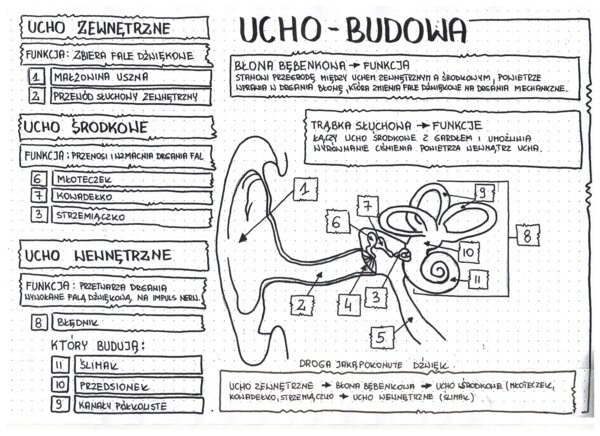 UCHO - BUDOWA
UCHO ZEWNĘTRZNE
FUNKCJA: ZBIERA FALE DŹWIĘKOWE
1 MAŁŻOWINA USZNA
2 PRZEWÓD SŁUCHOWY ZEWNĘTRZNY
UCHO ŚRODKOWE
FUNKCJA: PRZENOSI I WZMACNIA DRGANIA FAL
6 MŁOTECZEK
7 KOWADEŁKO
3 STRZEMIĄCZKO
UCHO WEWNĘTRZNE
FUNKCJA: PRZETWARZA DRGANIA
WYWOŁANE FALĄ DŹWIĘKOWĄ, NA IMPULS NERW.
8 BŁĘDNIK
KTÓRY BUDUJĄ:
11 ŚLIMAK
10 PRZEDSIONEK
9 KANAŁY PÓŁKOLISTE
BŁONA BĘBENKOWA → FUNKCJA
STANOWI PRZEGRODĘ MIĘDZY UCHEM ZEWNĘTRZNYM A ŚRODKOWYM, POWIETRZE
WPRAWIA W DRGANIA BŁONĘ, KTÓRA ZMIENIA FALE DŹWIĘKOWE NA DRGANIA MECHANICZNE.
TRĄBKA SŁUCHOWA → FUNKCJE
ŁĄCZY UCHO ŚRODKOWE Z GARDŁEM I UMOŻLIWIA
WYRÓWNANIE CIŚNIENIA POWIETRZA WEWNĄTRZ UCHA.
1
9
7
6
8
10
11
2
4
3
5
DROGA JAKĄ POKONUJE DŹWIĘK
UCHO ZEWNĘTRZNE → BŁONA BĘBENKOWA → UCHO ŚRODKOWE (MŁOTECZEK,
KOWADEŁKO, STRZEMIĄCZKO → UCHO WEWNĘTRZNE (ŚLIMAK)